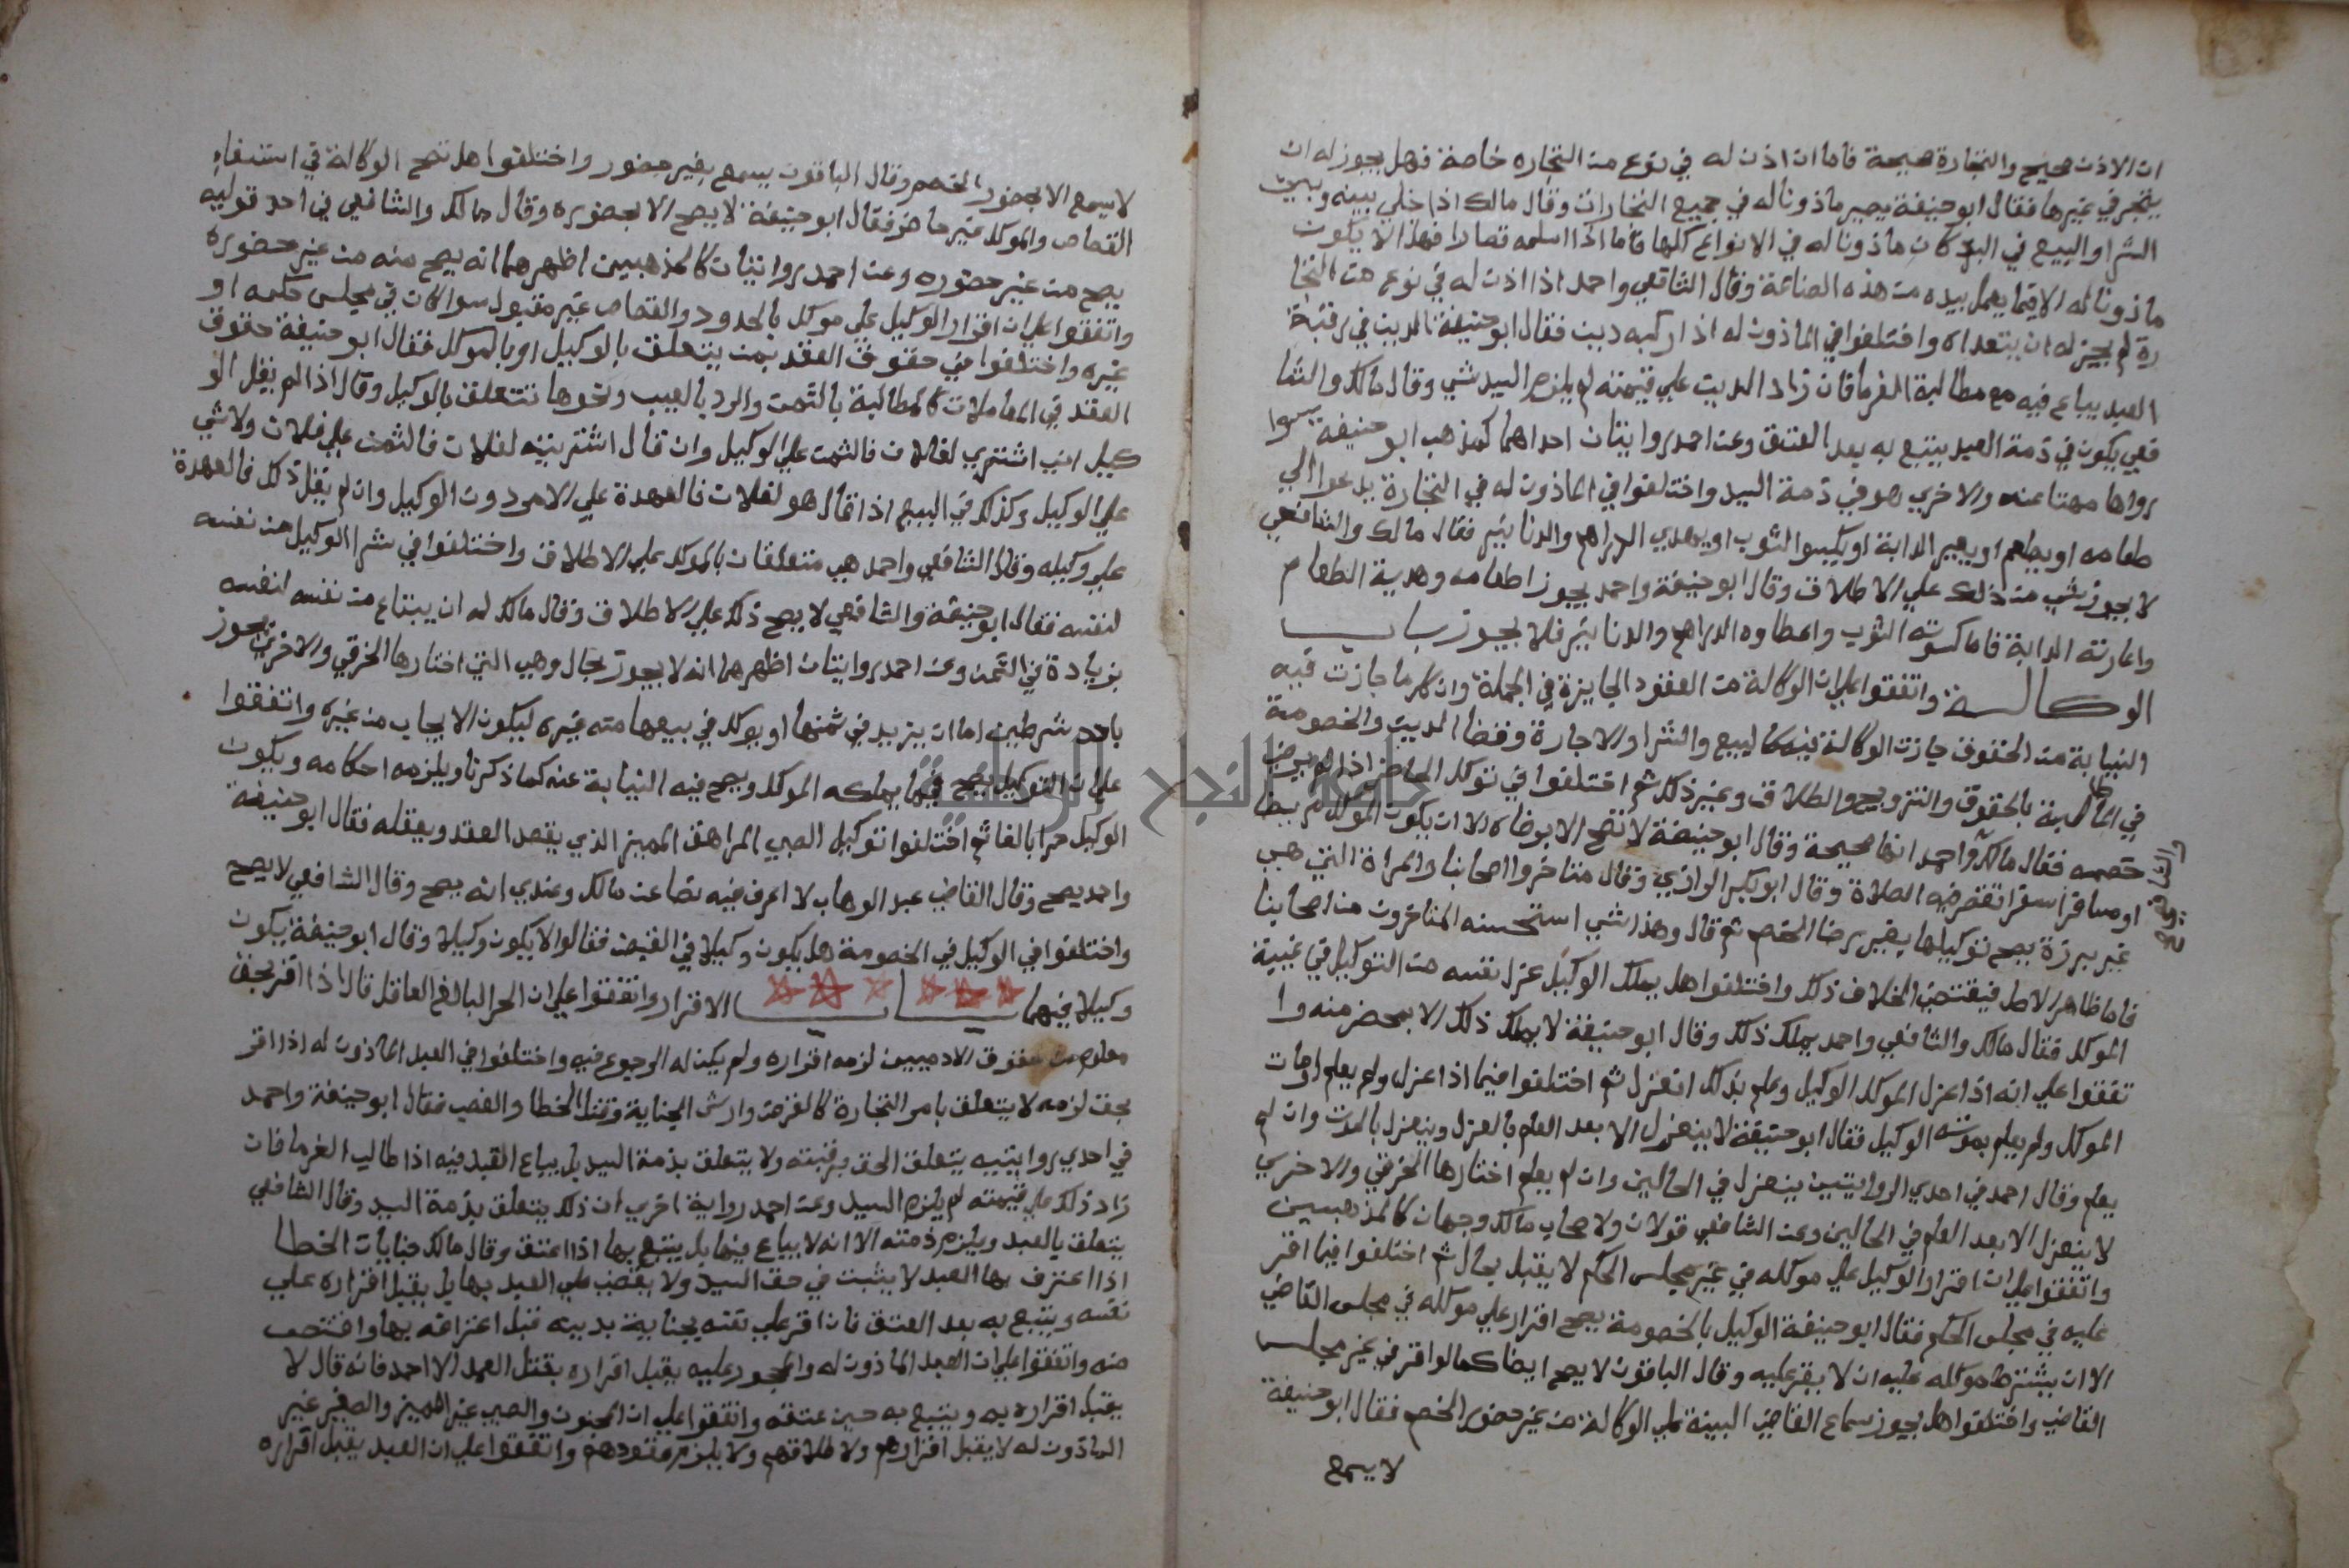 ان الاذن صحيح والتجارة صحيحة فاما ان اذن له في نوع من التجاره خاصة فهل يجوز له ان
يتجر في غيرها فقال ابو حنيفة يصير ماذونا له في جميع التجارات وقال مالك اذا خلي بينه وبين
الشرا والبيع في البز كان ماذونا له في الانواع كلها فاما اذا اسلمه قصارا فهذا لا يكون
ماذونا له الا فيما يعمل بيده من هذه الصناعة وقال الشافعي واحمد اذا اذن له في نوع من التجا
رة لم يجز له ان يتعداه واختلفوا في الماذون له اذا ركبه دين فقال ابو حنيفة الدين في رقبة
العبد يباع فيه مع مطالبة الغرما فان زاد الدين علي قيمته لم يلزم السيد شي وقال مالك والشا
فعي يكون في ذمة العبد يتبع به بعد العتق وعن احمد روايتان احداهما كمذهب ابو حنيفة سوا
رواها مهنا عنه والاخري هو في ذمة السيد واختلفوا في الماذون له في التجارة يدعوا الي
طعامه او يطعم او يعير الدابة او يكسوا الثوب او يهدي الدراهم والدنانير فقال مالك والشافعي
لا يجوز شي من ذلك علي الاطلاق وقال ابو حنيفة واحمد يجوز اطعامه وهدية الطعام
واعارته الدابة فاما كسوته الثوب واعطاوه الدراهم والدنانير فلا يجوز باب
الوكالة واتفقوا علي ان الوكالة من العقود الجايزة في الجملة وان كلما جازت فيه
النيابة من الحقوق جازت الوكالة فيه كالبيع والشرا والاجارة وقضا الدين والخصومة
في المطالبة بالحقوق والتزويج والطلاق وغير ذلك ثم اختلفوا في توكيل الحاضر اذا لم يرض
خصمه فقال مالك واحمد انها صحيحة وقال ابو حنيفة لا تصح الا برضاه الا ان يكون الموكل مريضا
والشافعي
او مسافرا سفرا تقصر فيه الصلاة وقال ابو بكر الرازي وقال متاخروا اصحابنا والمراة التي هي
غير برزة يصح توكيلها بغير رضا الخصم ثم قال وهذا شي استحسنه المتاخرون من اصحابنا
فاما ظاهر الاصل فيقتضي الخلاف ذلك واختلفوا هل يملك الوكيل عزل نفسه من التوكيل في غيبة
الموكل فقال مالك والشافعي واحمد يملك ذلك وقال ابو حنيفة لا يملك ذلك الا بمحضر منه وا
تفقوا علي انه اذا عزل الموكل الوكيل وعلم بذلك انعزل ثم اختلفوا فيما اذا عزله ولم يعلم او مات
الموكل ولم يعلم بموته الوكيل فقال ابو حنيفة لا ينعزل الا بعد العلم بالعزل وينعزل بالموت وان لم
يعلم وقال احمد في احدي الروايتين ينعزل في الحالين وان لم يعلم اختارها الخرقي والاخري
لا ينعزل الا بعد العلم في الحالين وعن الشافعي قولان ولاصحاب مالك وجهان كالمذهبين
واتفقوا علي ان اقرار الوكيل علي موكله في غير مجلس الحكم لا يقبل بحال ثم اختلفوا فيما اقر
عليه في مجلس الحكم فقال ابو حنيفة الوكيل بالخصومة يصح اقراره علي موكله في مجلس القاضي
الا ان يشترط موكله عليه ان لا يقر عليه وقال الباقون لا يصح ايضا كما لو اقر في غير مجلس
القاضي واختلفوا هل يجوز سماع القاضي البينة علي الوكالة من غير حضور الخصم فقال ابو حنيفة
لا يسمع
لا يسمع الا بحضور الخصم وقال الباقون يسمع بغير حضور واختلفوا هل تصح الوكالة في استيفاء
القصاص والموكل غير حاضر فقال ابو حنيفة لا يصح الا بحضوره وقال مالك والشافعي في احد قوليه
يصح من غير حضوره وعن احمد روايتان كالمذهبين اظهرهما انه يصح منه من غير حضوره
واتفقوا علي ان اقرار الوكيل علي موكله بالحدود والقصاص غير مقبول سوا كان في مجلس حكمه او
غيره واختلفوا في حقوق العقد بمن يتعلق بالوكيل او بالموكل فقال ابو حنيفة حقوق
العقد في المعاملات كالمطالبة بالثمن والرد بالعيب ونحوها تتعلق بالوكيل وقال اذا لم يقل الو
كيل اني اشتري لفلان فالثمن علي الوكيل وان قال اشتريته لفلان فالثمن علي فلان ولا شي
علي الوكيل وكذلك في البيع اذا قال هو لفلان فالعهدة علي الامر دون الوكيل وان لم يقل ذلك فالعهدة
علي وكيله وقال الشافعي واحمد هي متعلقات بالموكل علي الاطلاق واختلفوا في شرا الوكيل من نفسه
لنفسه فقال ابو حنيفة والشافعي لا يصح ذلك علي الاطلاق وقال مالك له ان يبتاع من نفسه لنفسه
بزيادة في الثمن وعن احمد روايتان اظهرهما انه لا يجوز بحال وهي التي اختارها الخرقي والاخري يجوز
باحد شرطين اما ان يزيد في ثمنها او يوكل في بيعها منه غيره ليكون الايجاب من غيره واتفقوا
علي ان التوكيل يصح فيما يملكه الموكل ويصح فيه النيابة عنه كما ذكرنا ويلزمه احكامه ويكون
الوكيل حرا بالغا ثم اختلفوا توكيل الصبي المراهق المميز الذي يقصد العقد ويعقله فقال ابو حنيفة
واحمد يصح وقال القاضي عبد الوهاب لا اعرف فيه نصا عن مالك وعندي انه يصح وقال الشافعي لا يصح
واختلفوا في الوكيل في الخصومة هل يكون وكيلا في القبض فقالوا لا يكون وكيلا وقال ابو حنيفة يكون
وكيلا فيهما باب الاقرار واتفقوا علي ان الحر البالغ العاقل قال اذا اقر بحق
معلوم من حقوق الادميين لزمه اقراره ولم يكن له الرجوع فيه واختلفوا في العبد الماذون له اذا اقر
بحق لزمه لا يتعلق بامر التجارة كالقرض وارش الجناية وقتل الخطا والغصب فقال ابو حنيفة واحمد
في احدي روايتيه يتعلق الحق برقبته ولا يتعلق بذمة السيد بل يباع العبد فيه اذا طالب الغرما فان
زاد ذلك علي قيمته لم يلزم السيد وعن احمد رواية اخري ان ذلك يتعلق بذمة السيد وقال الشافعي
يتعلق بالعبد ويلزم ذمته الا انه لا يباع فيها بل يتبع بها اذا اعتق وقال مالك جنايات الخطا
اذا اعترف بها العبد لا يثبت في حق السيد ولا يقضي علي العبد بها بل يقبل اقراره علي
نفسه ويتبع به بعد العتق فان اقر علي نفسه بجناية بدينه قبل اعترافه بها واقتص
منه واتفقوا علي ان العبد الماذون له والمحجور عليه يقبل اقراره بقتل العمد الا احمد فانه قال لا
يقبل اقراره به ويتبع به حين عتقه واتفقوا علي ان المجنون والصبي غير المميز والصغير غير
الماذون له لا يقبل اقرارهم ولا طلاقهم ولا يلزم عقودهم واتفقوا علي ان العبد يقبل اقراره
جامعة النجاح الوطنية